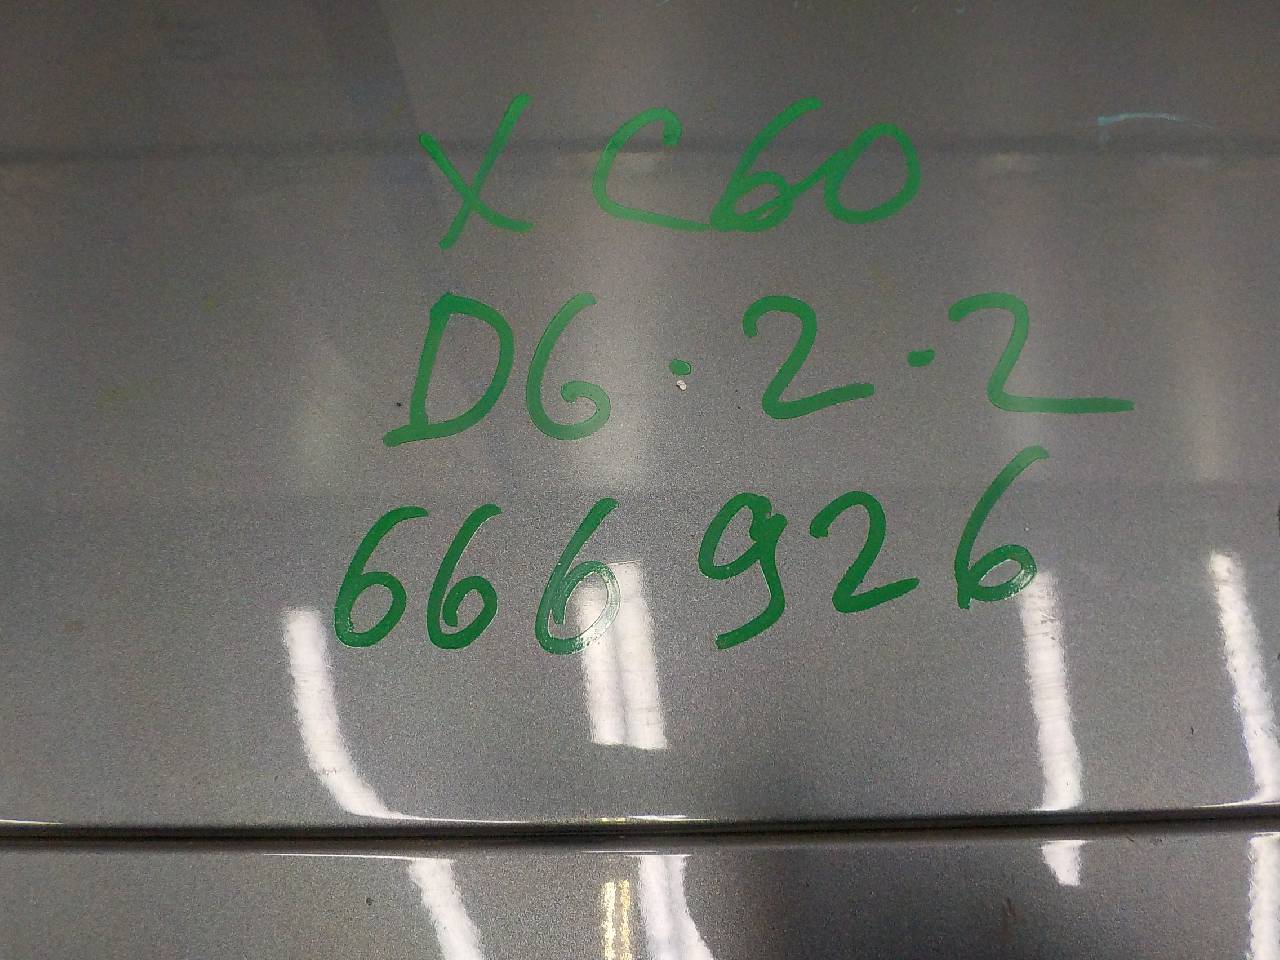 XC60
D6·2·2
666926